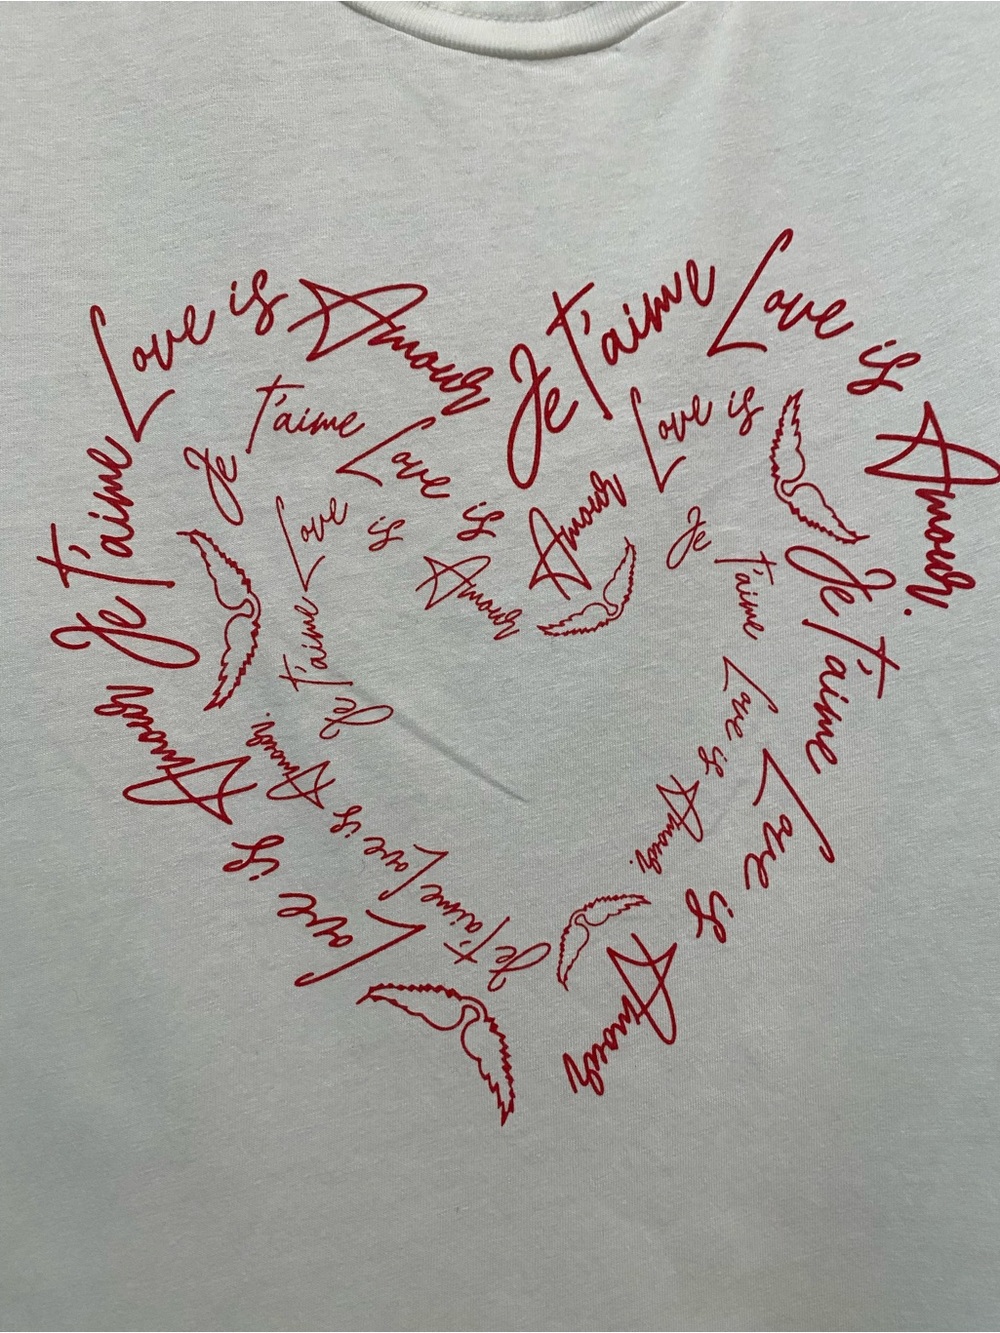 Je t'aime Love is Amour
Je t'aime Love is Amour.
Je t'aime Love is Amour
Love is Amour.
Je t'aime Love is Amour
Love is Amour
Je t'aime Love is Amour.
Je t'aime Love is Amour.
Je t'aime Love is Amour